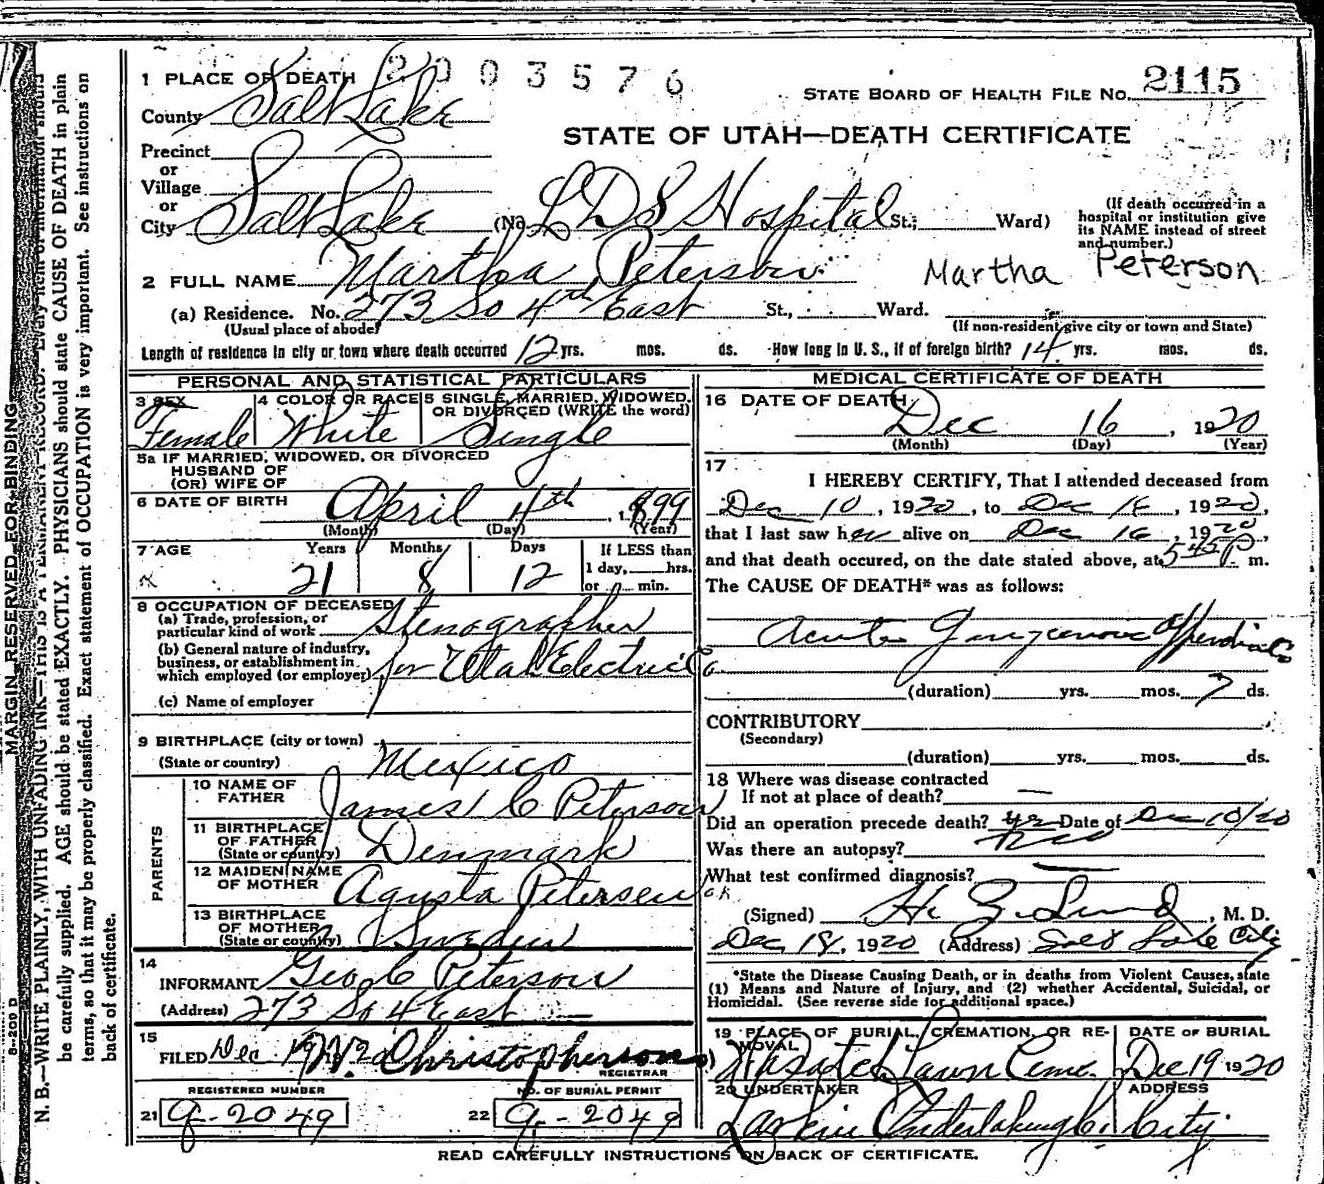 2003576
1 PLACE OF DEATH
STATE BOARD OF HEALTH FILE NO. 2115
County Salt Lake
STATE OF UTAH—DEATH CERTIFICATE
Precinct
or
Village
or
City Salt Lake (No. LDS Hospital St; Ward)
(If death occurred in a hospital or institution give its NAME instead of street and number.)
2 FULL NAME Martha Peterson
Martha Peterson
(a) Residence. No. 273 So 4th East St., Ward.
(Usual place of abode) (If non-resident give city or town and State)
Length of residence in city or town where death occurred 12 yrs. mos. ds. How long in U. S., if of foreign birth? 14 yrs. mos. ds.
PERSONAL AND STATISTICAL PARTICULARS
3 SEX Female
4 COLOR OR RACE White
5 SINGLE, MARRIED, WIDOWED, OR DIVORCED (WRITE the word) Single
5a IF MARRIED, WIDOWED, OR DIVORCED
HUSBAND OF
(OR) WIFE OF
6 DATE OF BIRTH April 4th, 1899
(Month) (Day) (Year)
7 AGE Years Months Days If LESS than
21 8 12 1 day, hrs.
or min.
8 OCCUPATION OF DECEASED
(a) Trade, profession, or
particular kind of work Stenographer
(b) General nature of industry,
business, or establishment in
which employed (or employer) for Utah Electric Co
(c) Name of employer
9 BIRTHPLACE (city or town)
(State or country) Mexico
PARENTS
10 NAME OF FATHER James C Peterson
11 BIRTHPLACE OF FATHER (State or country) Denmark
12 MAIDEN NAME OF MOTHER Agusta Petersen OK
13 BIRTHPLACE OF MOTHER (State or country) Sweden
14
INFORMANT Geo C Peterson
(Address) 273 So 4 East
15
FILED Dec 19 Christopherson
REGISTRAR
REGISTERED NUMBER NO. OF BURIAL PERMIT
21 9-2049 22 9-2049
MEDICAL CERTIFICATE OF DEATH
16 DATE OF DEATH Dec 16, 1920
(Month) (Day) (Year)
17
I HEREBY CERTIFY, That I attended deceased from
Dec 10, 1920, to Dec 16, 1920,
that I last saw her alive on Dec 16, 1920,
and that death occured, on the date stated above, at 5-45 P. m.
The CAUSE OF DEATH* was as follows:
Acute Gangrenous Appendicitis
(duration) yrs. mos. 7 ds.
CONTRIBUTORY
(Secondary)
(duration) yrs. mos. ds.
18 Where was disease contracted
If not at place of death? —
Did an operation precede death? yes Date of Dec 10/20
Was there an autopsy? no
What test confirmed diagnosis? —
(Signed) H. Z. Lund, M. D.
Dec 18, 1920 (Address) Salt Lake City
*State the Disease Causing Death, or in deaths from Violent Causes, state
(1) Means and Nature of Injury, and (2) whether Accidental, Suicidal, or
Homicidal. (See reverse side for additional space.)
19 PLACE OF BURIAL, CREMATION, OR REMOVAL DATE OF BURIAL
Wasatch Lawn Ceme. Dec 19 1920
20 UNDERTAKER ADDRESS
Larkin Undertaking Co. City
READ CAREFULLY INSTRUCTIONS ON BACK OF CERTIFICATE.
MARGIN RESERVED FOR BINDING
N. B.—WRITE PLAINLY, WITH UNFADING INK—THIS IS A PERMANENT RECORD. Every item of information should
be carefully supplied. AGE should be stated EXACTLY. PHYSICIANS should state CAUSE OF DEATH in plain
terms, so that it may be properly classified. Exact statement of OCCUPATION is very important. See instructions on
back of certificate.